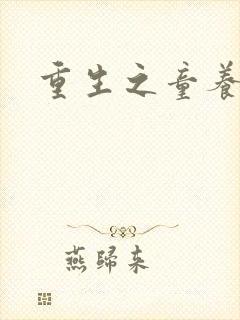 重生之童養
燕歸来